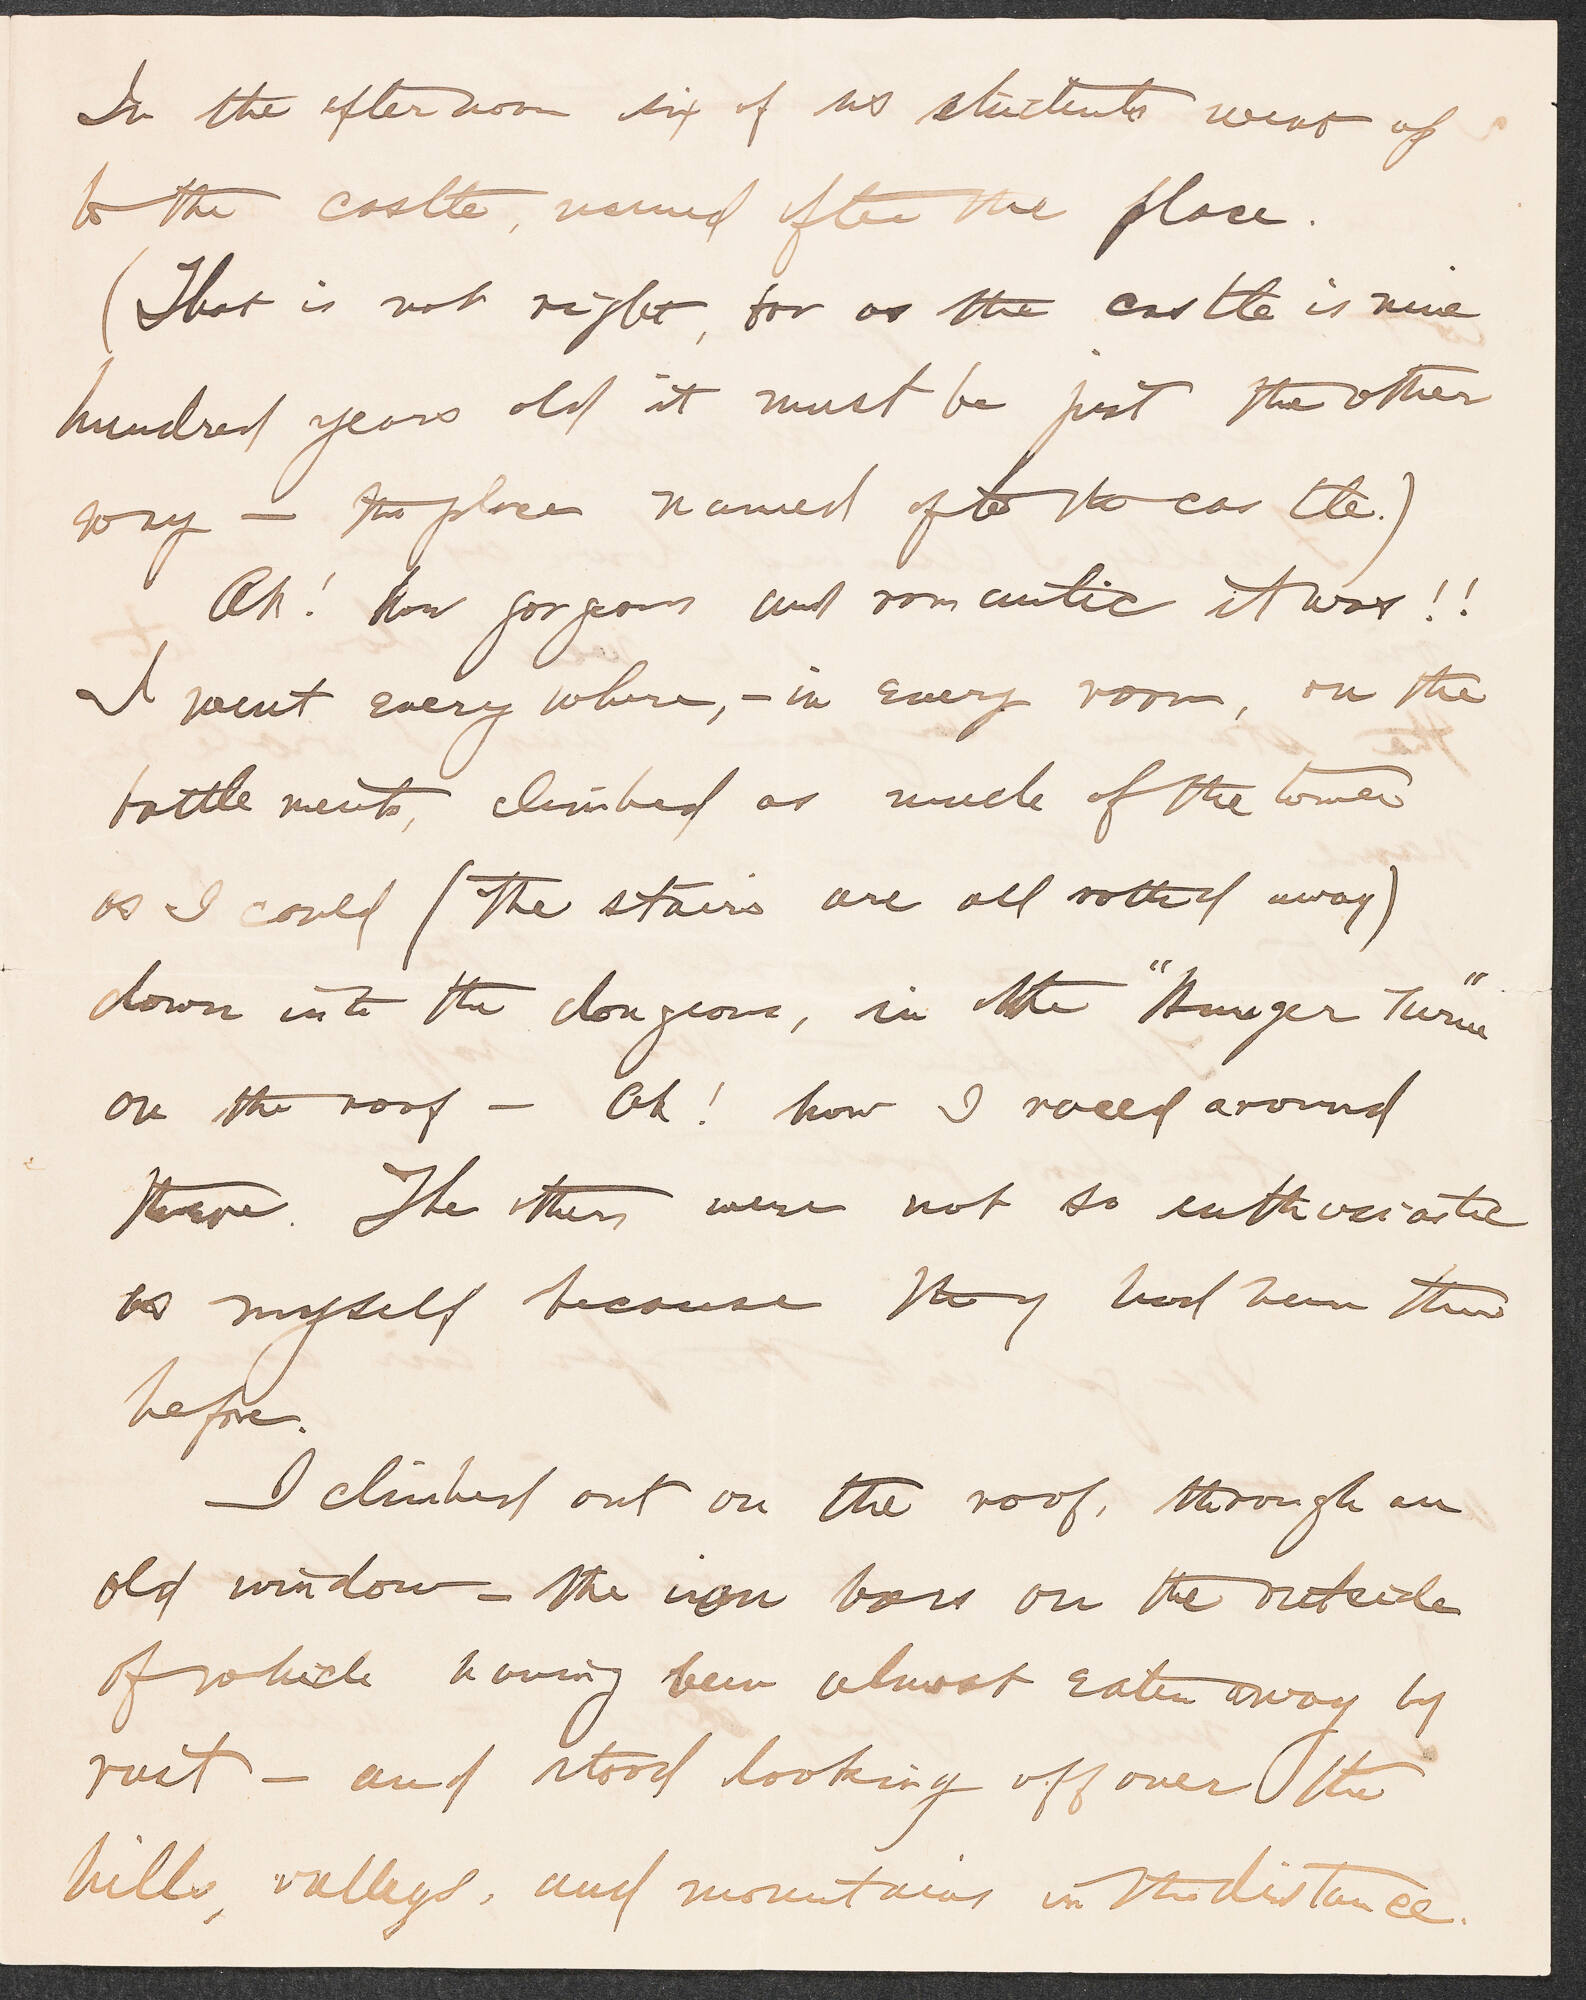 In the afternoon six of us students went up
to the castle, named after the place.
(That is not right, for as the castle is nine
hundred years old it must be just the other
way — the place named after the castle.)
Oh! how gorgeous and romantic it was!!
I went everywhere, – in every room, on the
battlements, climbed as much of the tower
as I could (the stairs are all rotted away)
down into the dongeons, in the "Hunger Turm"
on the roof – Oh! how I raced around
there. The others were not so enthusiastic
as myself because they had been there
before.
I climbed out on the roof, through an
old window – the iron bars on the outside
of which having been almost eaten away by
rust – and stood looking off over the
hills, valleys, and mountains in the distance.